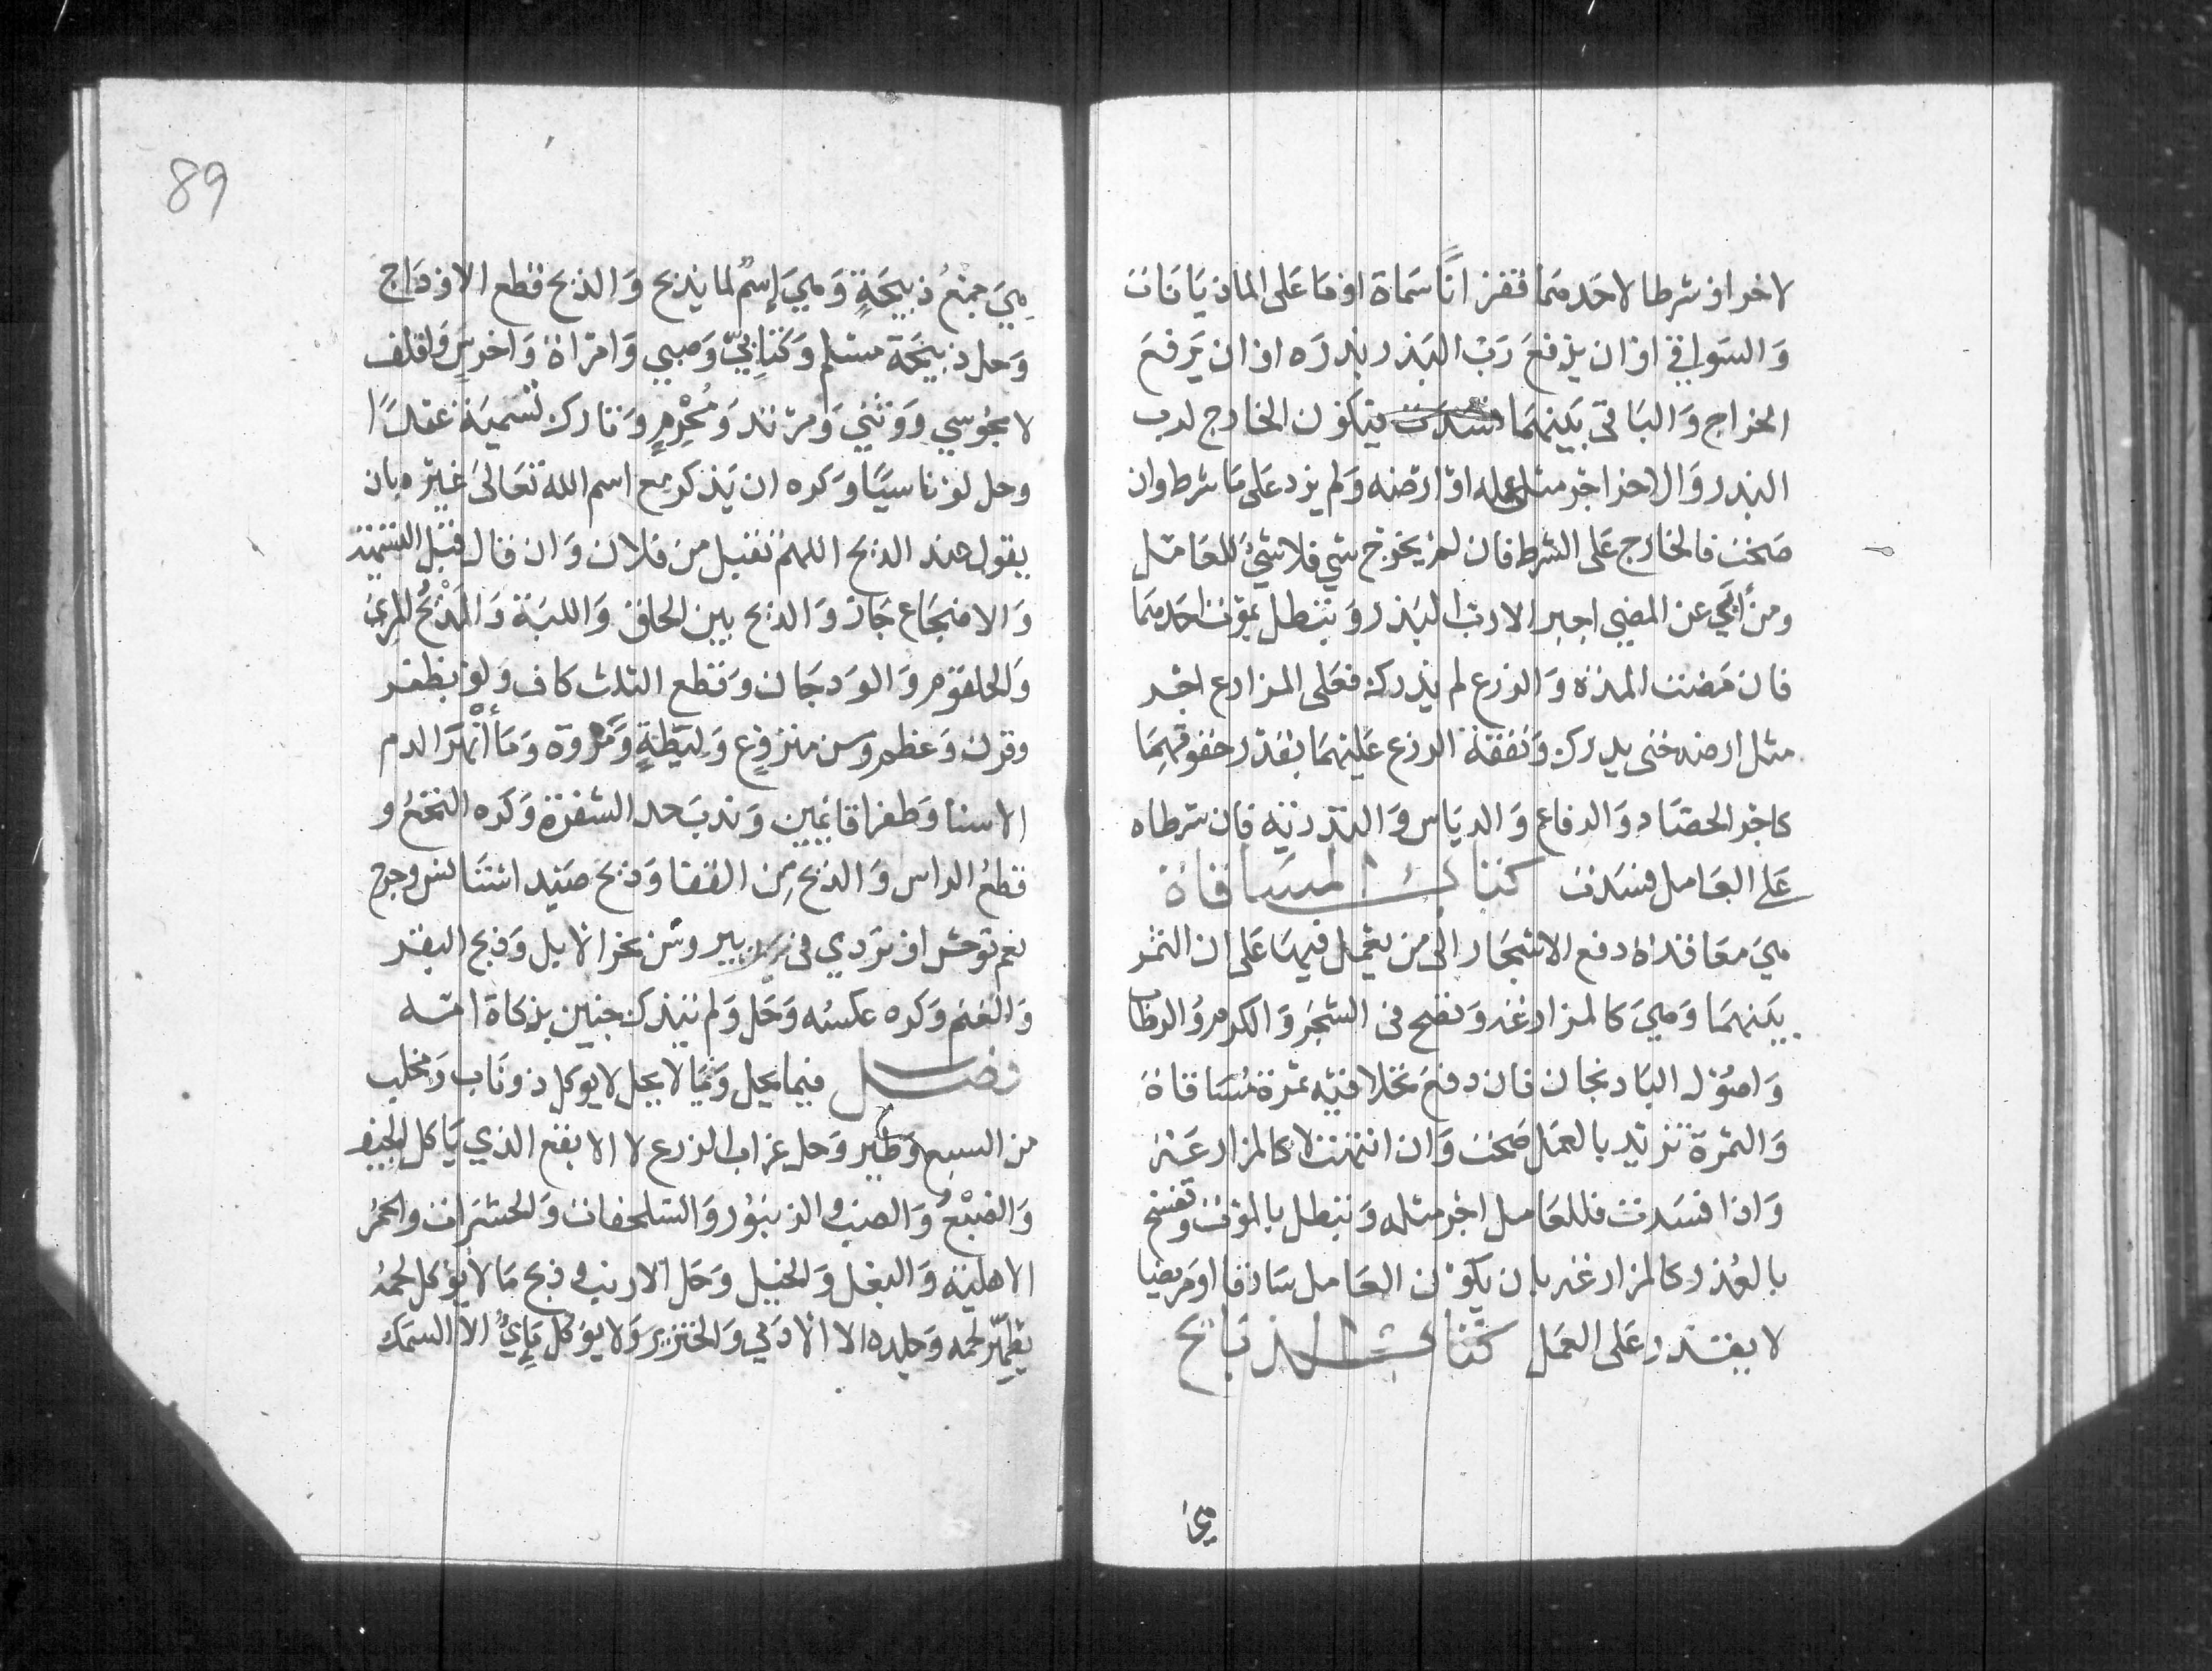 لاخر او شرطا لاحدهما قفزانًا مسماة او ما على الماذيانات
والسواقي او ان يرفع رب البذر بذره او ان يرفع
الخراج والباقي بينهما فسدت فيكون الخارج لرب
البذر وللاخر اجر مثل عمله او ارضه ولم يزد على ما شرط وان
صحت فالخارج على الشرط فان لم يخرج شي فلا شيء للعامل
ومن أبى عن المضي اجبر الا رب البذر وتبطل بموت احدهما
فان مضت المدة والزرع لم يدرك فعلى المزارع اجر
مثل ارضه حتى يدرك ونفقة الزرع عليهما بقدر حقوقهما
كاجر الحصاد والرفاع والدياس والتذرية فان شرطاه
على العامل فسدت كتاب المساقاة
هي معاقدة دفع الاشجار الى من يعمل فيها على ان الثمر
بينهما وهي كالمزارعة وتصح في الشجر والكرم والرطاب
واصول الباذنجان فان دفع نخلا فيه ثمرة مساقاة
والثمرة تزيد بالعمل صحت وان انتهت لا كالمزارعة
واذا فسدت فللعامل اجر مثله وتبطل بالموت وتفسخ
بالعذر كالمزارعة بان يكون العامل سارقا او مريضا
لا يقدر على العمل كتاب الذبائح
هي
89
هي جمع ذبيحةٍ وهي إسمٌ لما يذبح والذبح قطع الاوداج
وحل ذبيحة مسلم وكتابيّ وصبي وامراة واخرس واقلف
لا مجوسي ووثني ومرتد ومُحْرِمٍ وتارك تسمية عمدًا
وحل لو ناسيًا وكره ان يذكر مع اسم الله تعالى غيره بان
يقول عند الذبح اللهم تقبل من فلان وان قال قبل التسمية
والاضجاع جاز والذبح بين الحلق واللبة والمذبح المري
والحلقوم والودجان وقطع الثلث كاف ولو بظفر
وقرن وعظم وسن منزوع وليطةٍ ومروة وما أنْهَرَ الدم
الا سنا وظفرا قائمين وندب حد الشفرة وكره النخع و
قطع الراس والذبح من القفا وذبح صيد استانس وجرح
نعم توحش او تردي في بير وسن نحر الابل وذبح البقر
والغنم وكره عكسه وحل ولم يتذك جنين بذكاة امه
فصل فيما يحل وفيما لا يحل لا يوكل ذو ناب ومخلب
من السبع وطير وحل غراب الزرع لا الابقع الذي ياكل الجيف
والضبع والضب والزنبور والسلحفاة والحشرات والحمر
الاهلية والبغل والخيل وحل الارنب وذبح ما لا يؤكل لحمه
يطهر لحمه وجلده الا الادمي والخنزير ولا يوكل مايي الا السمك